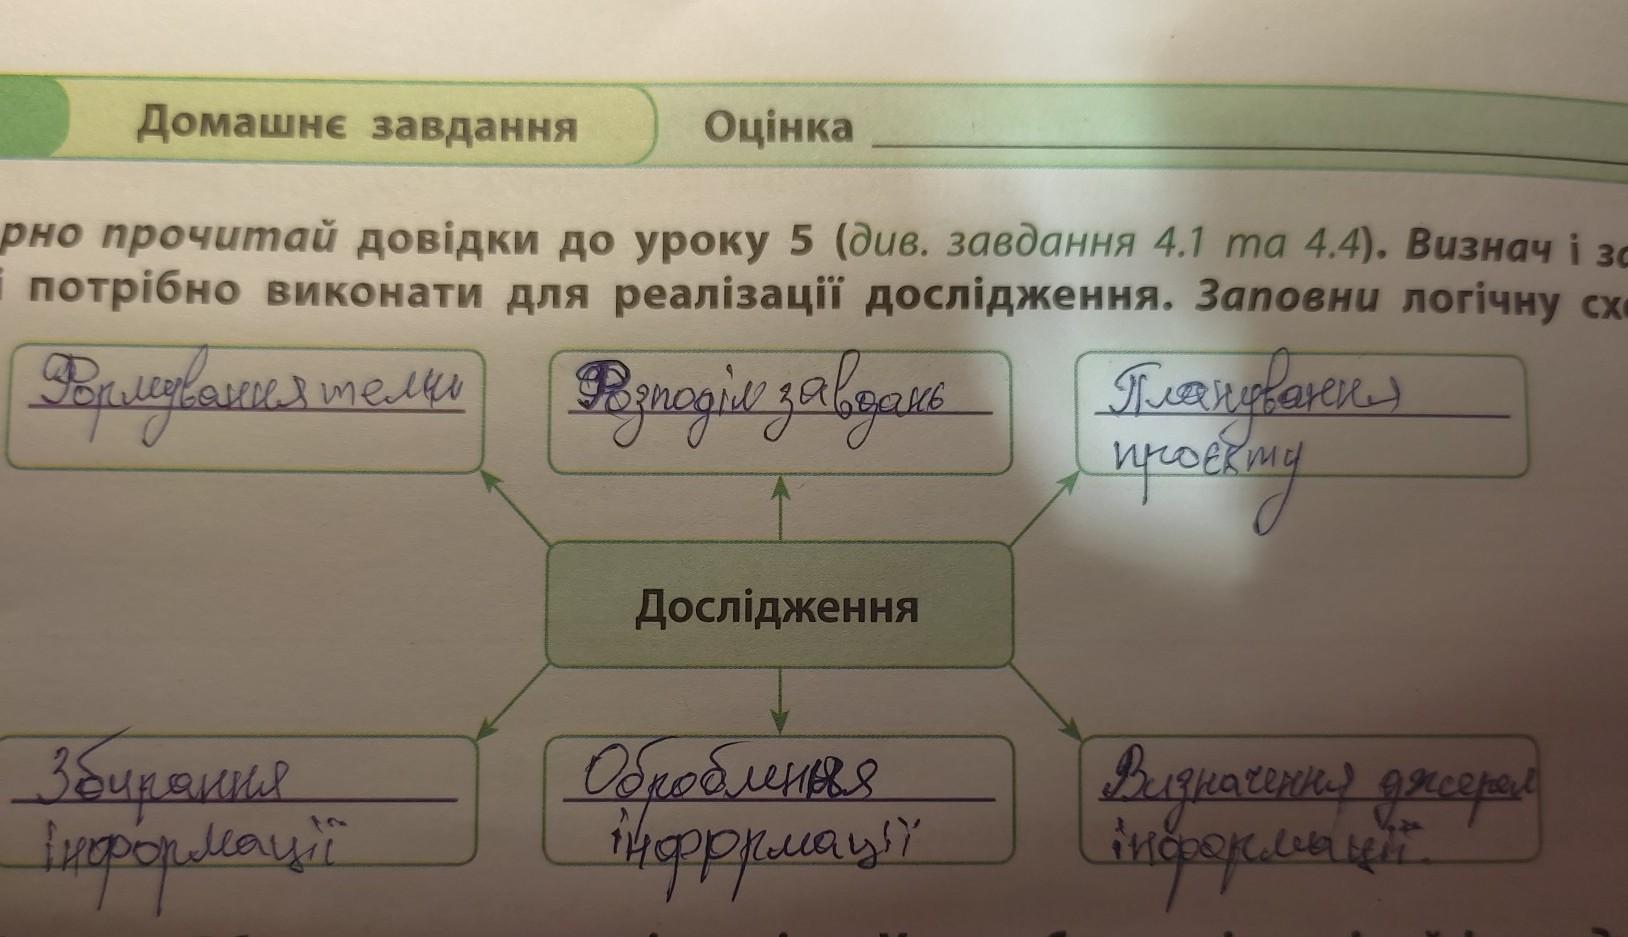 Домашнє завдання Оцінка
рно прочитай довідки до уроку 5 (див. завдання 4.1 та 4.4). Визнач і
потрібно виконати для реалізації дослідження. Заповни логічну
Формування теми
Розподіл завдань
Планування
проєкту
Дослідження
Збирання
інформації
Оброблення
інформації
Визначення джерел
інформації.